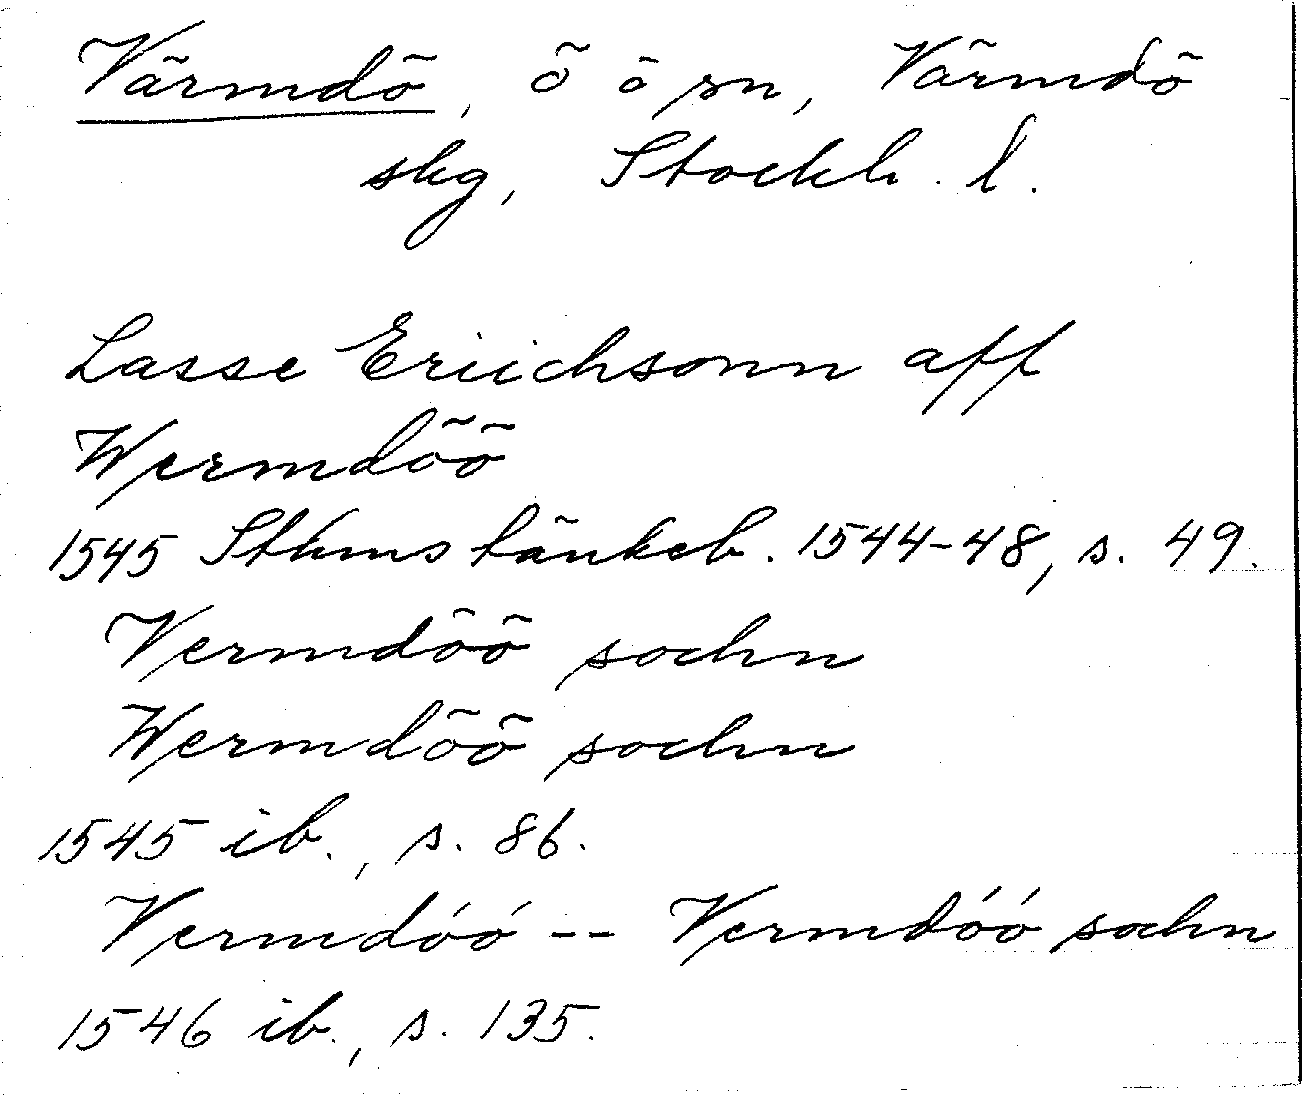 Värmdö, ö o sn, Värmdö
skg, Stockh. l.
Lasse Eriichsonn aff
Wermdöö
1545 Sthms tänkeb. 1544-48, s. 49.
Vermdöö sochn
Wermdöö sochn
1545 ib., s. 86.
Vermdóó -- Vermdóó sochn
1546 ib., s. 135.